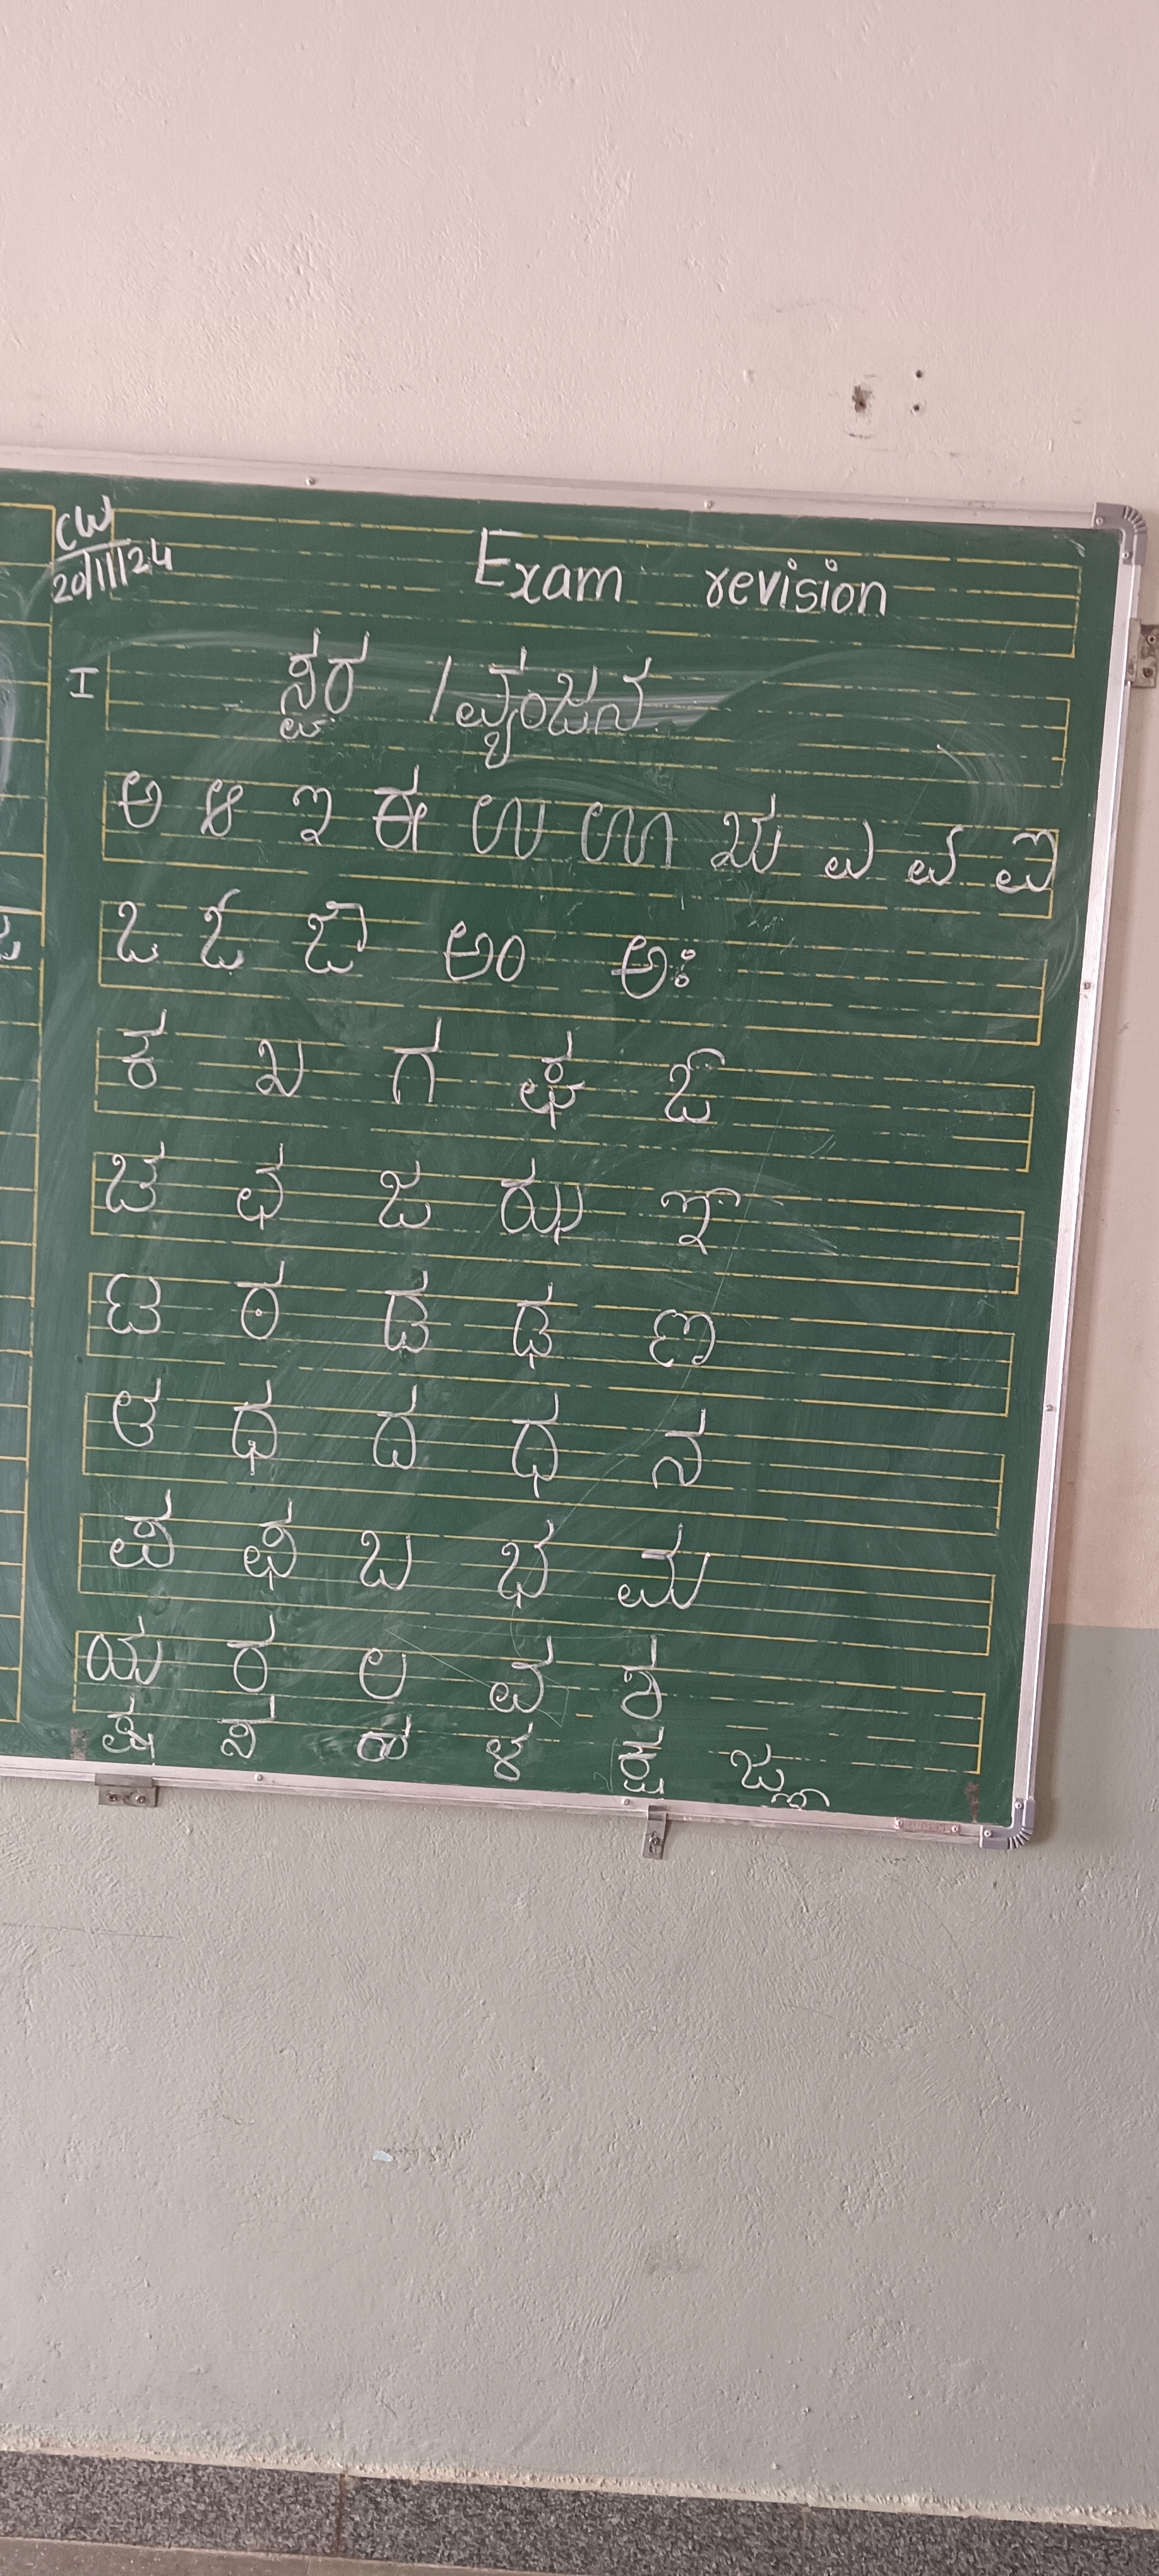 CW
20/11/24
Exam revision
I ಸ್ವರ / ವ್ಯಂಜನ
ಅ ಆ ಇ ಈ ಉ ಊ ಋ ಎ ಏ ಐ
ಒ ಓ ಔ ಅಂ ಅಃ
ಕ ಖ ಗ ಘ ಙ
ಚ ಛ ಜ ಝ ಞ
ಟ ಠ ಡ ಢ ಣ
ತ ಥ ದ ಧ ನ
ಪ ಫ ಬ ಭ ಮ
ಯ ರ ಲ ವ ಶ
ಷ ಸ ಹ ಳ ಕ್ಷ ಜ್ಞ